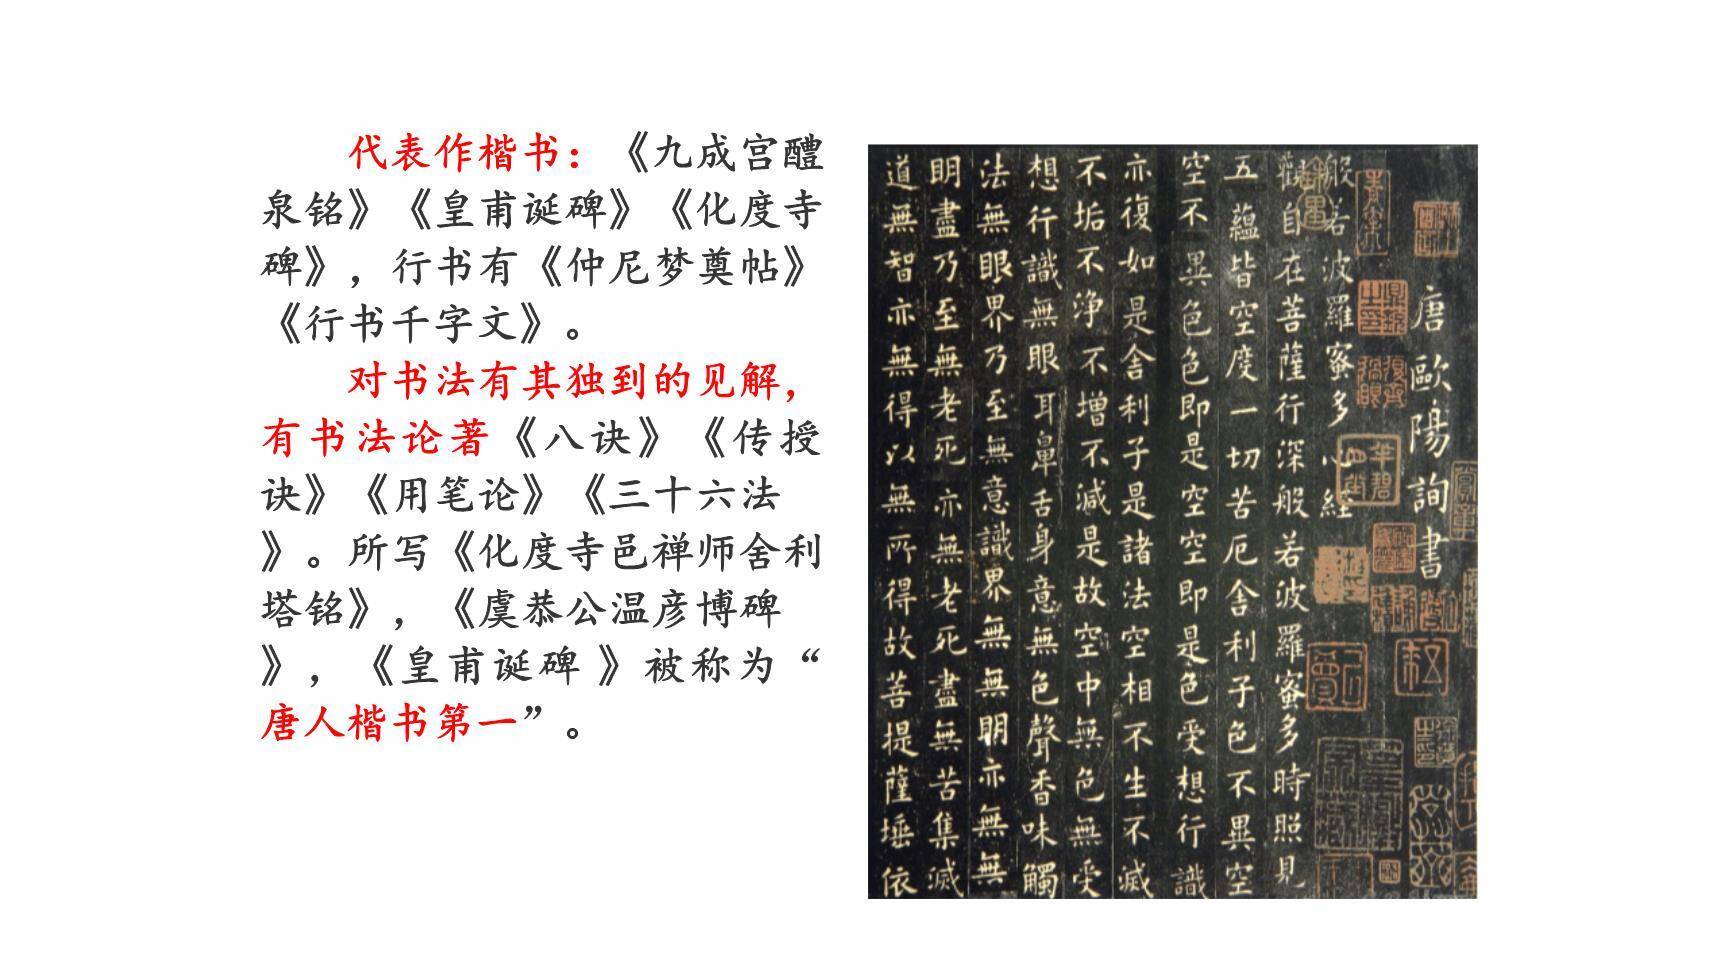 代表作楷书：《九成宫醴
泉铭》《皇甫诞碑》《化度寺
碑》，行书有《仲尼梦奠帖》
《行书千字文》。
对书法有其独到的见解，
有书法论著《八诀》《传授
诀》《用笔论》《三十六法
》。所写《化度寺邑禅师舍利
塔铭》，《虞恭公温彦博碑
》，《皇甫诞碑 》被称为“
唐人楷书第一”。
唐歐陽詢書
般若波羅蜜多心経
觀自在菩薩行深般若波羅蜜多時照見
五蘊皆空度一切苦厄舍利子色不異空
空不異色色即是空空即是色受想行識
亦復如是舍利子是諸法空相不生不滅
不垢不浄不增不減是故空中無色無受
想行識無眼耳鼻舌身意無色聲香味觸
法無眼界乃至無意識界無無明亦無無
明盡乃至無老死亦無老死盡無苦集滅
道無智亦無得以無所得故菩提薩埵依